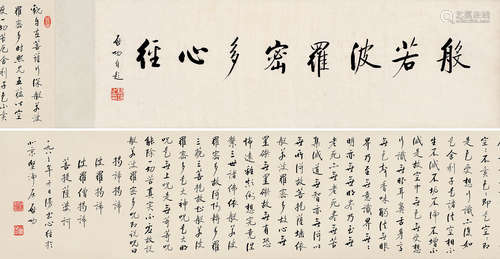 般若波羅密多心經
啟功自題
觀自在菩薩行深般若波
羅密多時照見五蘊皆空
度一切苦厄舍利子色不異
空空不異色色即是空空即
是色受想行識亦復如
是舍利子是諸法空相不
生不滅不垢不淨不增不
減是故空中無色無受想
行識無眼耳鼻舌身意
無色聲香味觸法無眼
界乃至無意識界無無
明亦無無明盡乃至無
老死亦無老死盡無苦
集滅道無智亦無得以
無所得故菩提薩埵依
般若波羅密多故心無
罣礙無罣礙故無有恐
怖遠離顛倒夢想究竟涅
槃三世諸佛依般若波
羅密多故得阿耨多羅
三藐三菩提故知般若波
羅密多是大神咒是大明
咒是無上咒是無等等咒
能除一切苦真實不虛故說
般若波羅密多咒即說咒曰
揭諦揭諦
波羅揭諦
波羅僧揭諦
菩提薩婆訶
一九八三年 書心經於
北京堅淨居 啟功